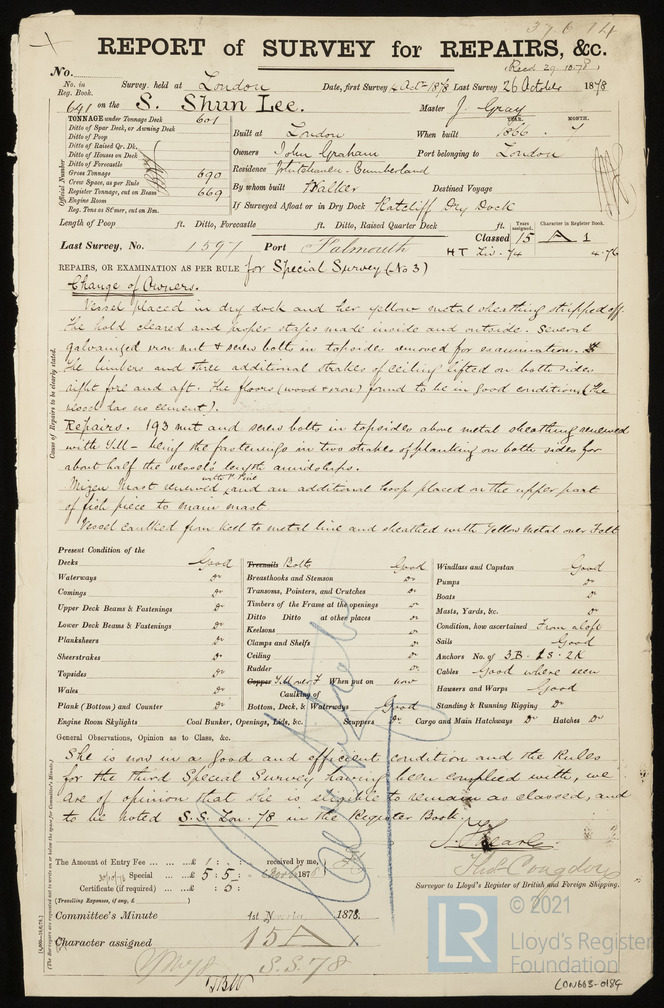 37614
REPORT of SURVEY for REPAIRS, &c.
(Recd 29.10.78)
No.
No. in Reg. Book. Survey held at London Date, first Survey 4 Oct 1878 Last Survey 26 October 1878
641 on the S. Shun Lee. Master J. Gray
TONNAGE under Tonnage Deck 601
Ditto of Spar Deck, or Awning Deck
Ditto of Poop
Ditto of Raised Qr. Dk.
Ditto of Houses on Deck
Ditto of Forecastle
Gross Tonnage 690
Crew Space, as per Rule
Register Tonnage, cut on Beam 669
Engine Room
Reg. Tons as St'mer, cut on Bm.
Official Number
YEAR. MONTH.
Built at London When built 1866 . 7
Owners John Graham Port belonging to London
Residence Whitehaven. Cumberland
By whom built Walker Destined Voyage
If Surveyed Afloat or in Dry Dock Ratcliff Dry Dock
Length of Poop ft. Ditto, Forecastle ft. Ditto, Raised Quarter Deck ft.
Years assigned. Character in Register Book.
Classed 15 A 1
Last Survey, No. 1597 Port Falmouth HT Liv. 74 4.76
REPAIRS, OR EXAMINATION AS PER RULE for Special Survey (No 3)
Change of Owners.
Vessel placed in dry dock and her yellow metal sheathing stripped off.
The hold cleared and proper stages made inside and outside. Several
galvanized iron nut & screw bolts in topsides removed for examination.
The limbers and three additional strakes of ceiling lifted on both sides
right fore and aft. The floors (wood & iron) found to be in good condition (the
vessel has no cement).
Repairs. 193 nut and screw bolts in topsides above metal sheathing renewed
with Y.M – being the fastenings in two strakes of planking on both sides for
about half the vessel's length amidships.
Mizen Mast renewed with P. Pine, and an additional hoop placed on the upper part
of fish piece to main mast
Vessel caulked from keel to metal line and sheathed with Yellow Metal over Felt
Causes of Repairs to be clearly stated.
Present Condition of the
Decks Good
Waterways Do
Comings Do
Upper Deck Beams & Fastenings Do
Lower Deck Beams & Fastenings Do
Planksheers Do
Sheerstrakes Do
Topsides Do
Wales Do
Plank (Bottom) and Counter Do
Engine Room Skylights Coal Bunker, Openings, Lids, &c.
Treenails Bolts Good
Breasthooks and Stemson Do
Transoms, Pointers, and Crutches Do
Timbers of the Frame at the openings Do
Ditto Ditto at other places Do
Keelsons Do
Clamps and Shelfs Do
Ceiling Do
Rudder Do
Copper Y.M over F When put on now
Caulking of
Bottom, Deck, & Waterways Good
Scuppers Do Cargo and Main Hatchways Do Hatches Do
Windlass and Capstan Good
Pumps Do
Boats Do
Masts, Yards, &c. Do
Condition, how ascertained From aloft
Sails Good
Anchors No. of 3.B. 1 S. 2K
Cables Good where seen
Hawsers and Warps Good
Standing & Running Rigging Do
General Observations, Opinion as to Class, &c.
She is now in as good and efficient condition and the Rules
for the third Special Survey having been complied with, we
are of opinion that she is eligible to remain as classed, and
to be noted S.S. Lon. 78 in the Register Book.
The Amount of Entry Fee ... ... £ 1 : : received by me,
Special ... ... £ 5 : 5 : 1878
Certificate (if required) ... : 5 :
(Travelling Expenses, if any, £ )
Thos Congdon
Surveyor to Lloyd's Register of British and Foreign Shipping.
Committee's Minute 1st 1878.
Character assigned 15 A 1
S.S. 78
© 2021
LR
Lloyd's Register
Foundation
LON663-0189